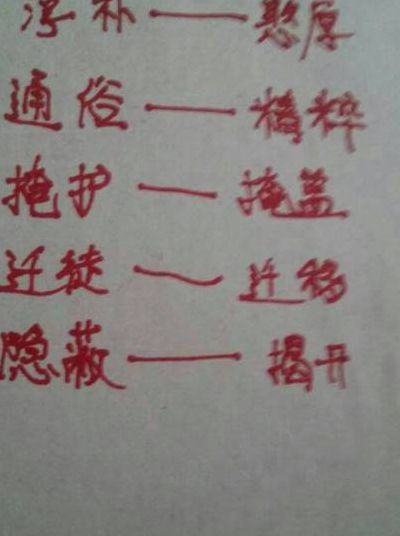 淳朴——憨厚
通俗——精粹
掩护——掩盖
迁徒——迁移
隐蔽——揭开